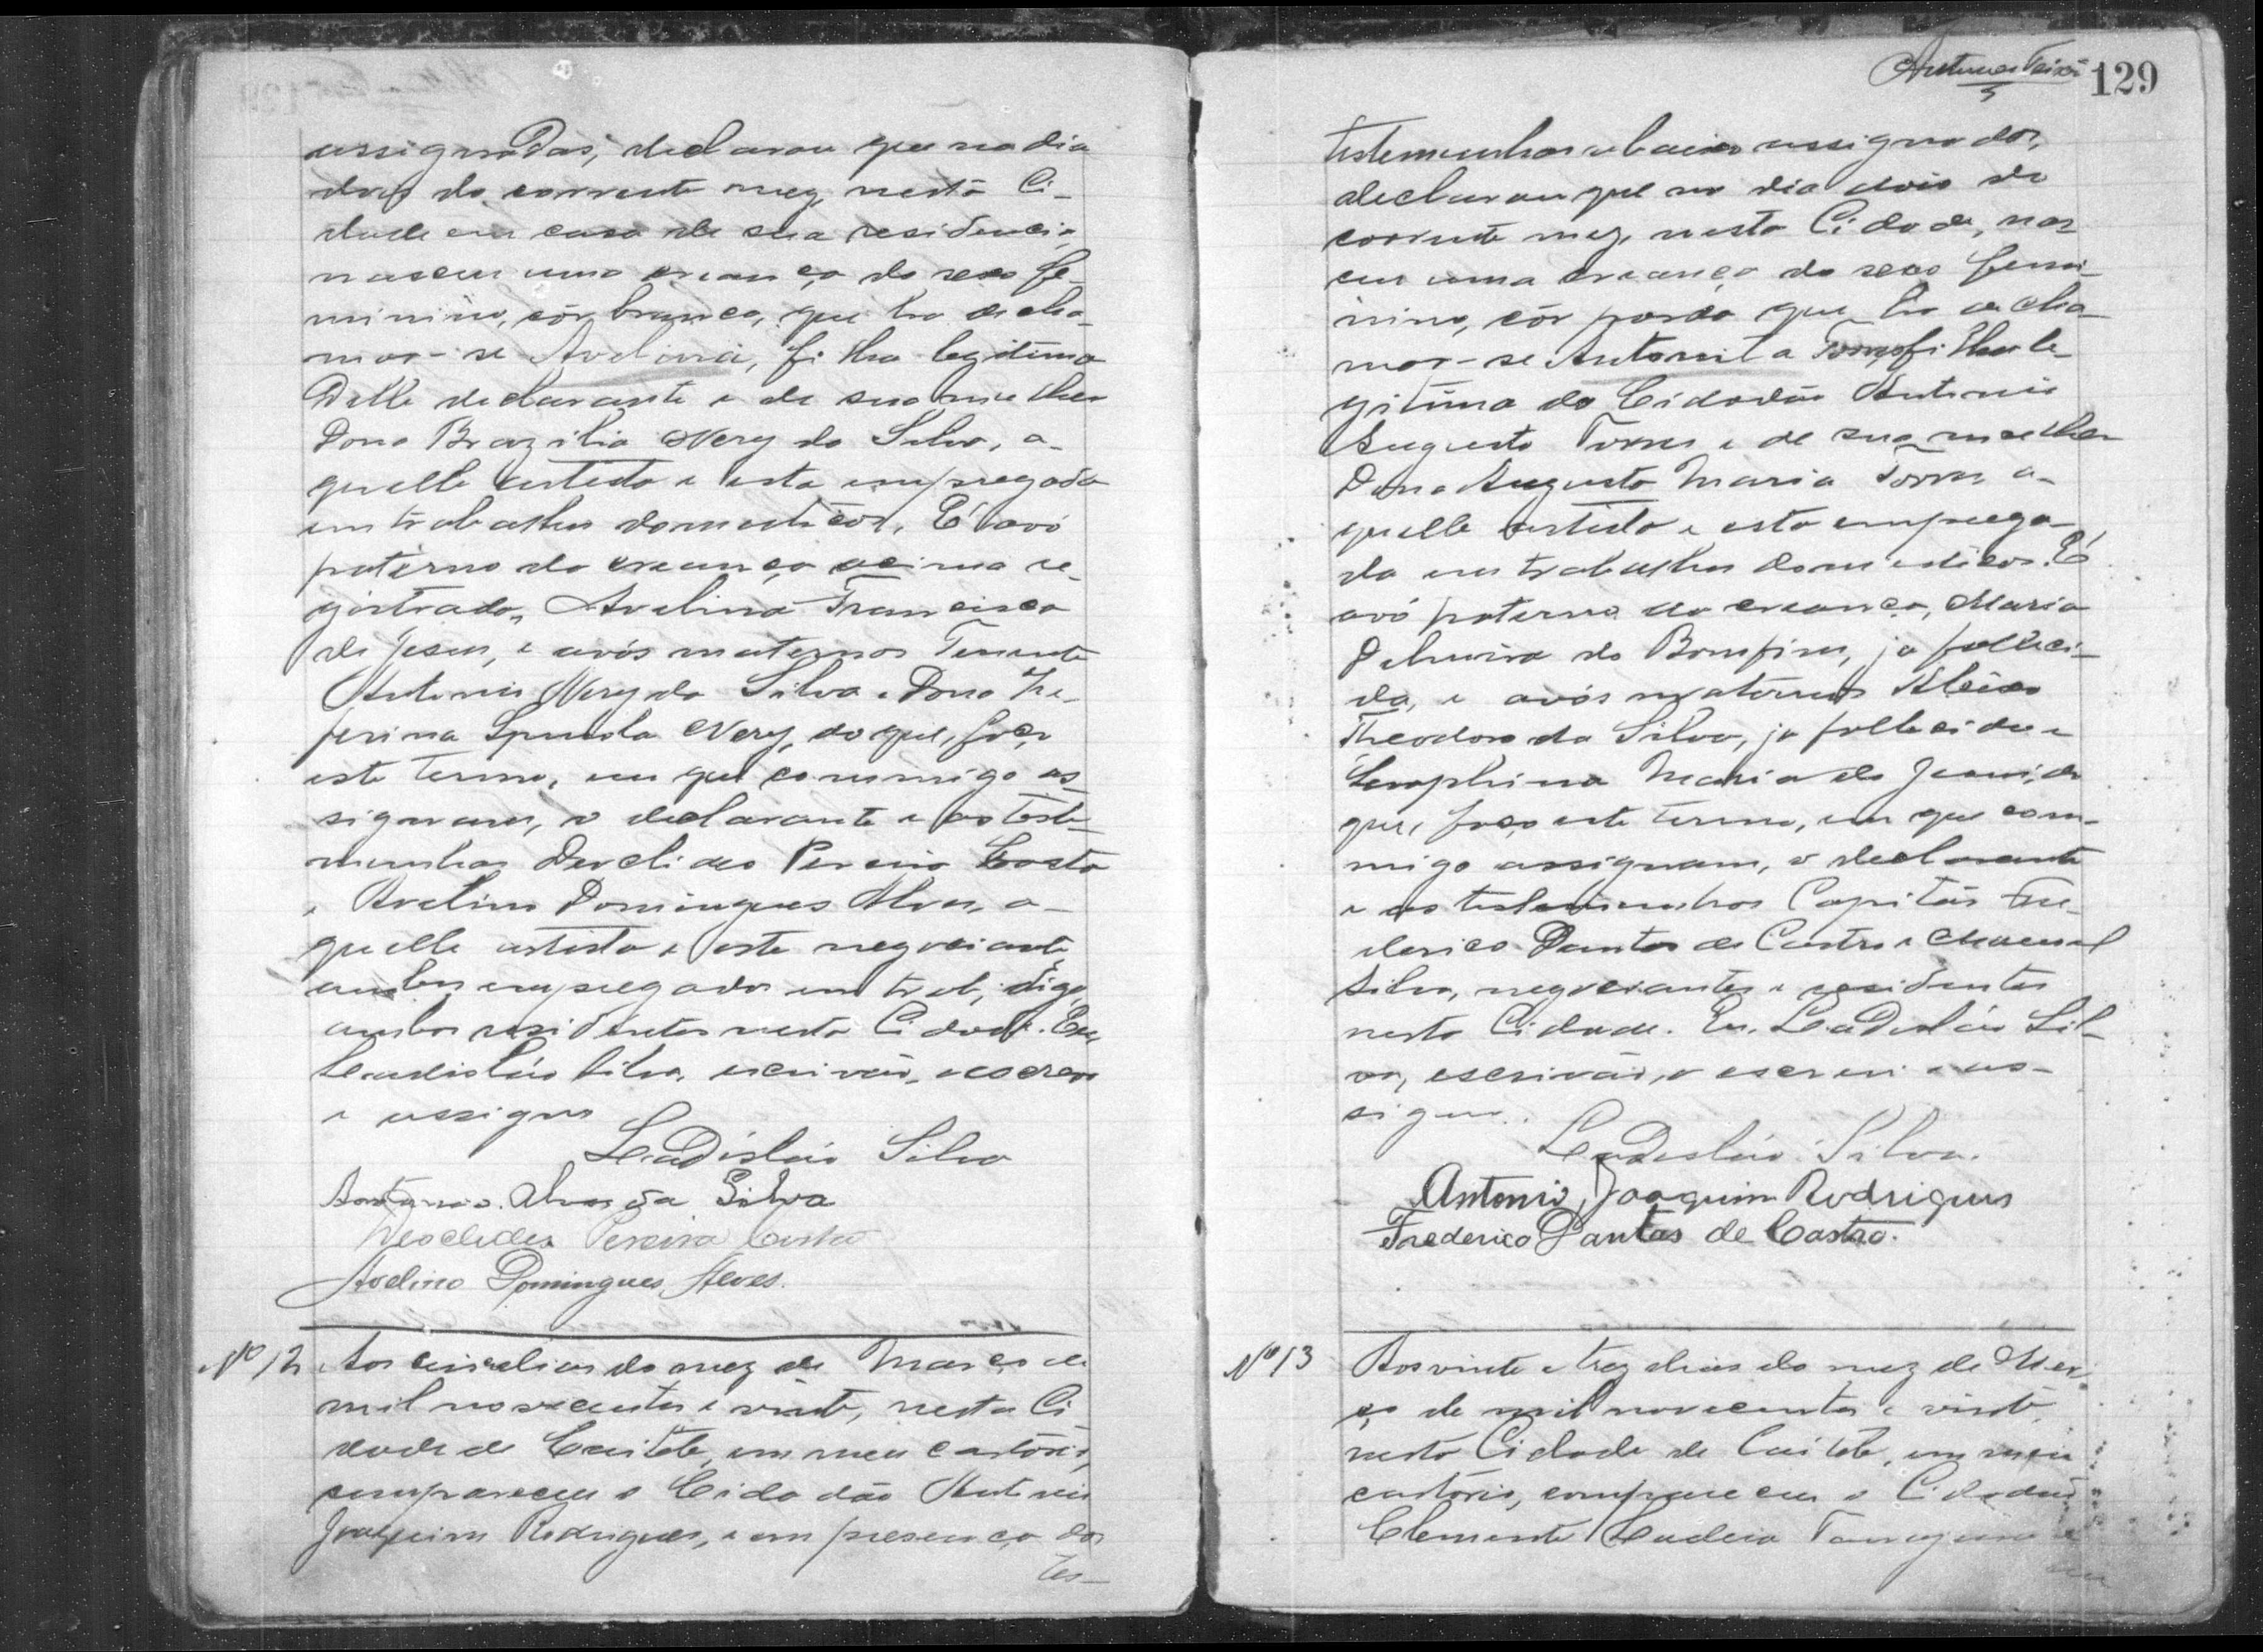 assignadas, declarou que no dia
dous do corrente mez, nesta Ci-
dade em casa de sua residencia,
nasceu uma creança do sexo fe-
minino, côr branca, que ha de cha-
mar-se Avelina, filha legitima
delle declarante e de sua mulher
Dona Brazilia Nery da Silva, a-
quelle artista e esta empregada
em trabalhos domesticos. É avó
paterna da creança acima re-
gistrada, Avelina Francisca
de Jesus, e avós maternos Tenente
Antonio Nery da Silva e Dona Ze-
ferina Spinola Nery, do que, faço
este termo, em que commigo as-
signam, o declarante e as teste-
munhas Deoclides Pereira Costa
e Avelino Domingues Alves, a-
quelle artista e este negociante,
ambos empregados em trab, digo,
ambos residentes nesta Cidade. Eu,
Leadisláo Silva, escrivão, o escrevi
e assigno
Leadisláo Silva
Antonio Alves da Silva
Deoclides Pereira Costa
Avelino Domingues Alves.
Nº 12 Aos cinco dias do mez de Março de
mil novecentos e vinte, nesta Ci-
dade de Caiteté, em meu cartorio,
compareceu o Cidadão Antonio
Joaquim Rodrigues, e em presença das
tes-
129
testemunhas abaixo assignadas,
declarou que no dia dois do
corrente mez, nesta Cidade, nas-
ceu uma creança do sexo femi-
nino, côr parda que ha de cha-
mar-se Antonita Torres filha le-
gitima do Cidadão Antonio
Augusto Torres e de sua mulher
Dona Augusta Maria Torres a-
quelle artista e esta emprega-
da em trabalhos domesticos. É
avó paterna da creança, Maria
do Bomfim, ja falleci-
da, e avós maternos Aleixo
Theodoro da Silva, ja fallecido e
Seraphina Maria de Jesus, do
que, faço este termo, em que com-
migo assignam, o declarante
e as testemunhas Capitão Fre-
derico Dantas de Castro e Manoel
Silva, negociantes e residentes
nesta Cidade. Eu, Leadisláo Sil-
va, escrivão, o escrevi e as-
signo.
Leadisláo Silva.
Antonio Joaquim Rodrigues
Frederico Dantas de Castro.
Nº 13 Aos vinte e trez dias do mez de Mar-
ço de mil novecentos e vinte,
nesta Cidade de Caiteté, em meu
cartorio, compareceu o Cidadão
Clemente